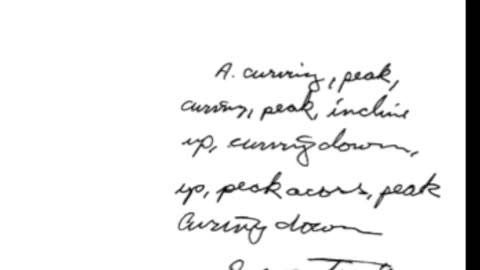 A. curving, peak,
curving, peak, incline
up, curving down,
up, peak acors, peak
Curving down